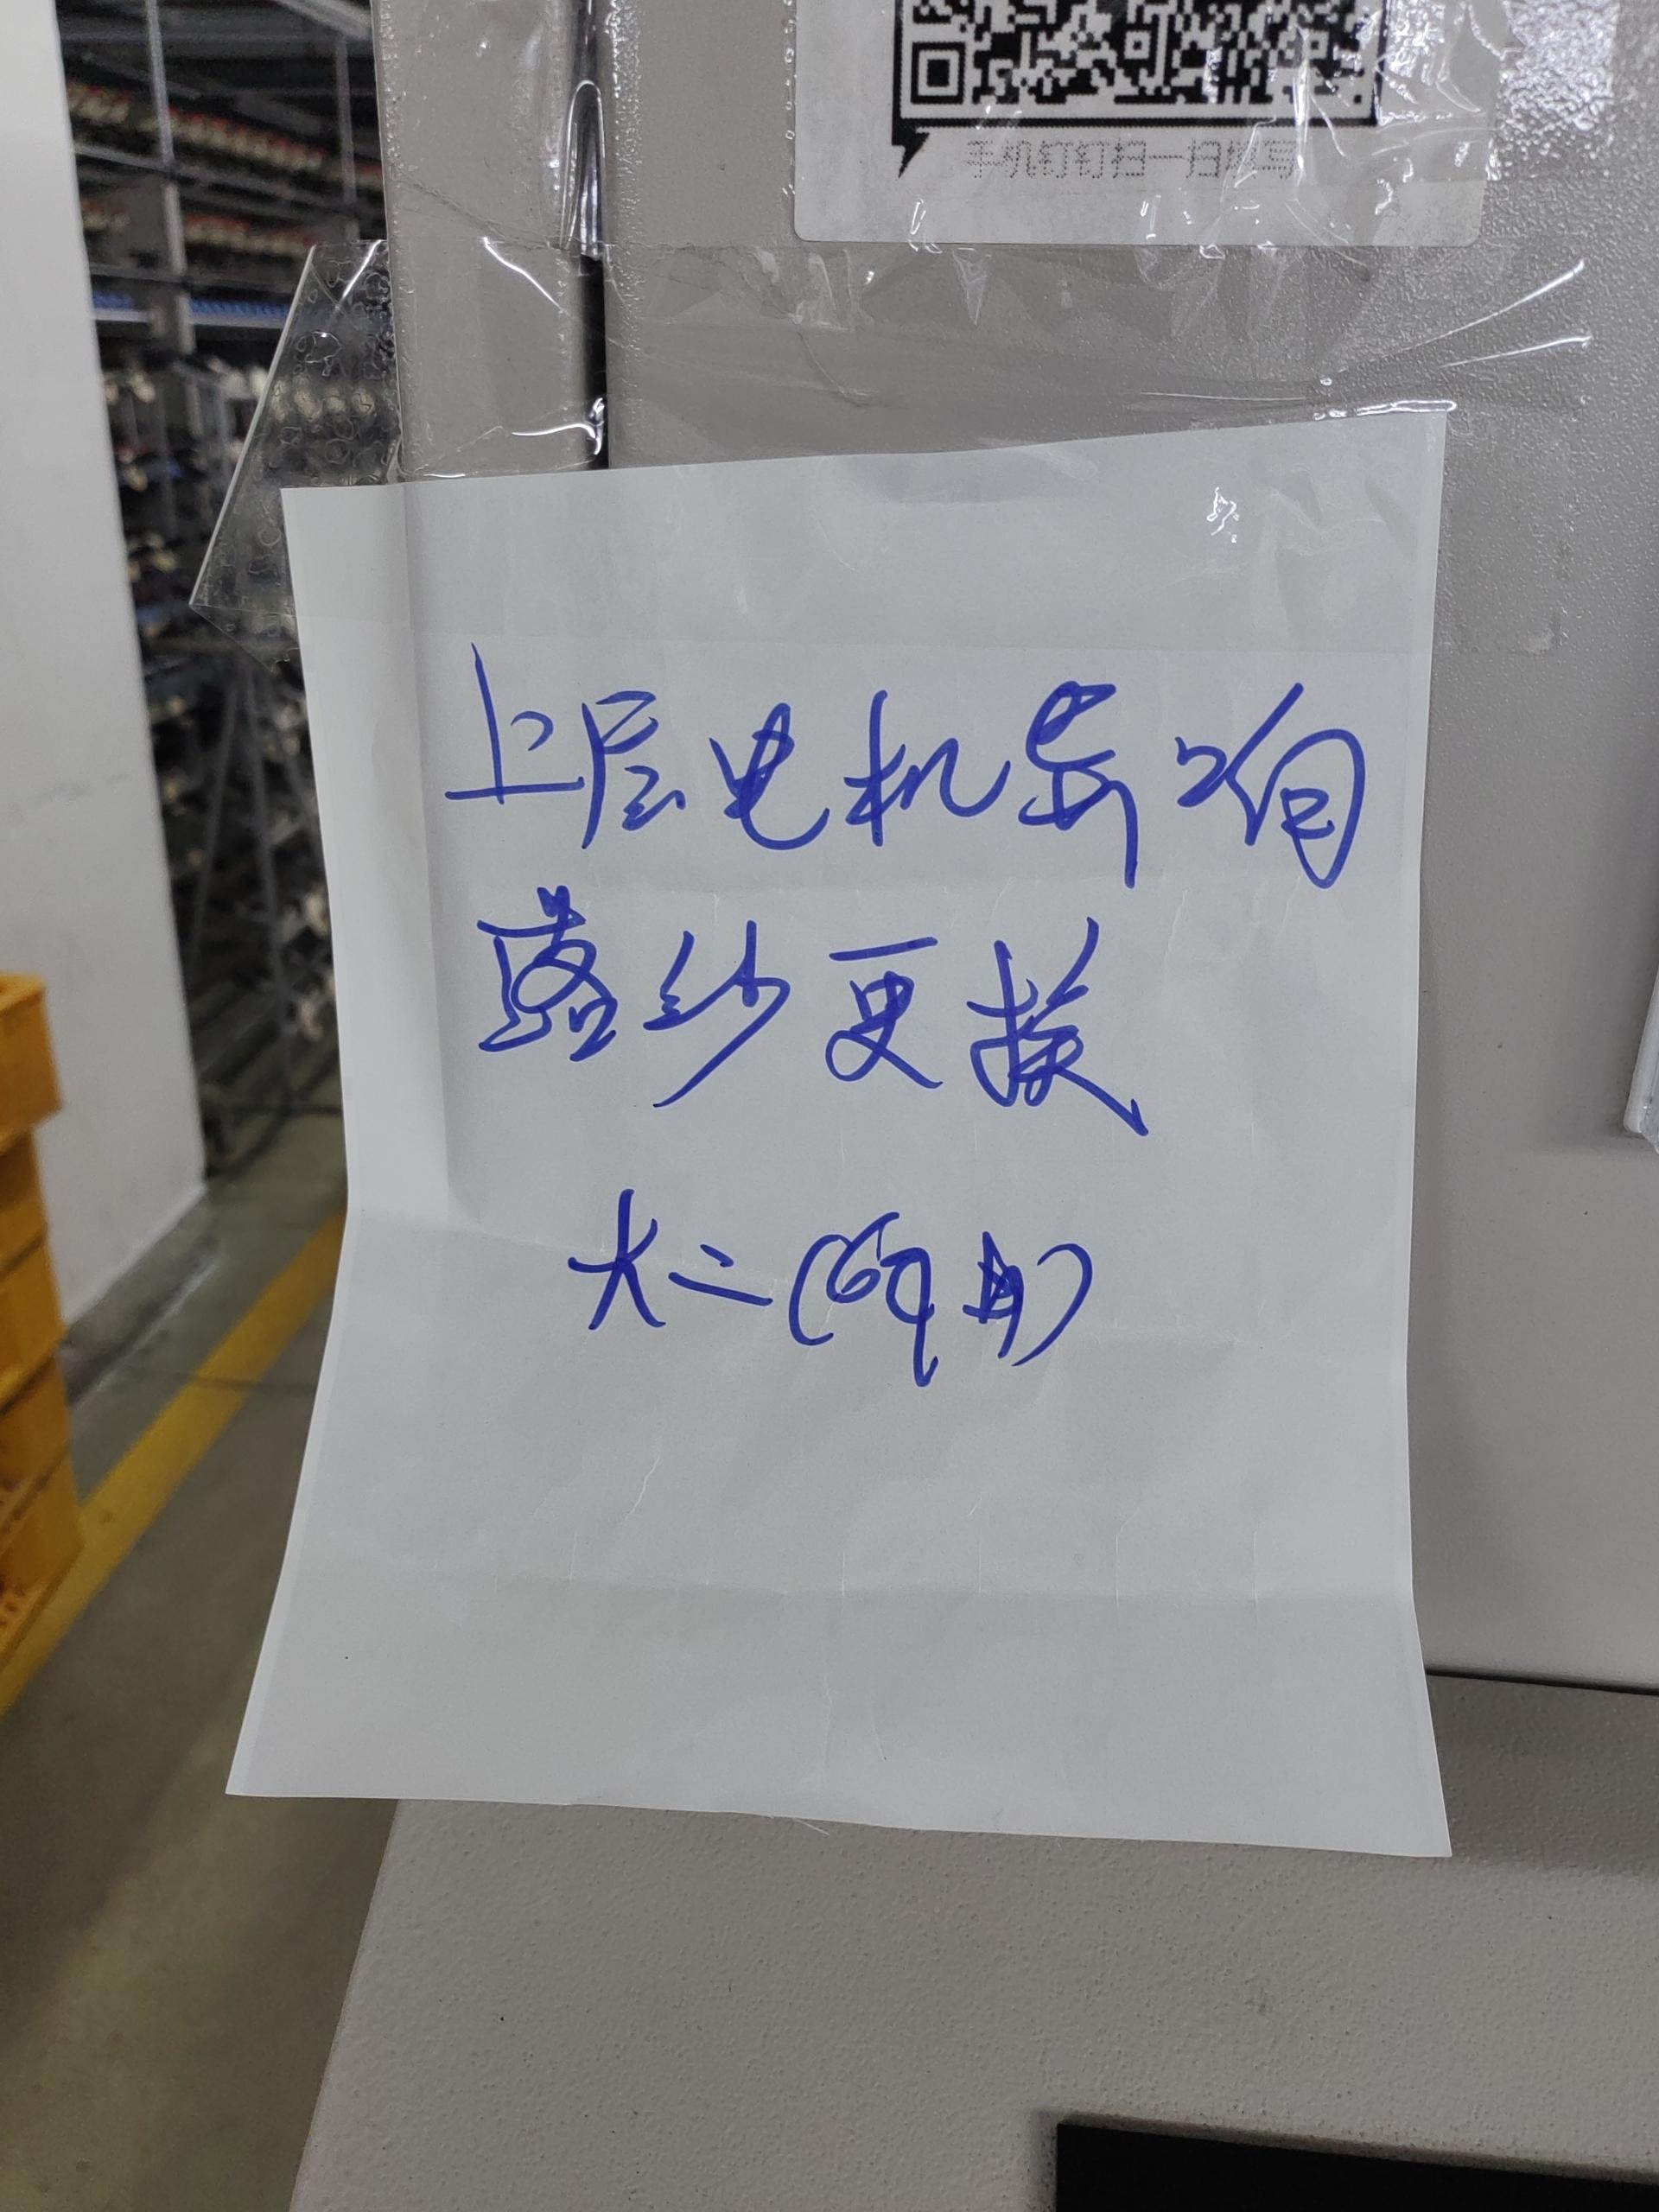 手机钉钉扫一扫填写
上层电机异响
落纱更换
大二(69用)